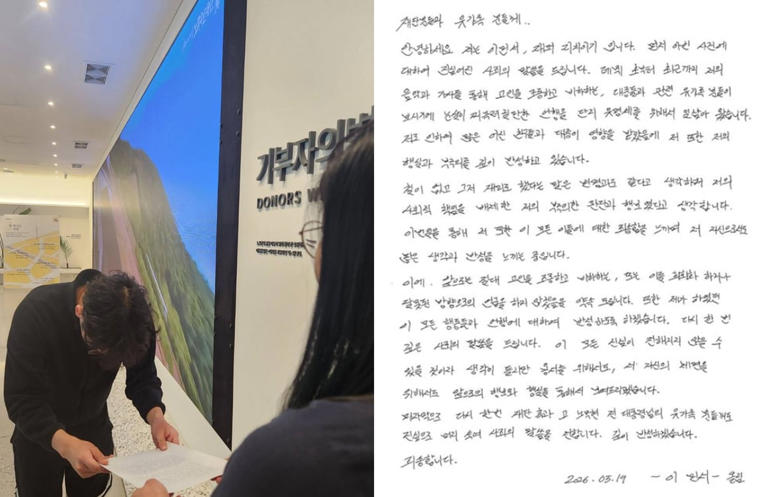 기부자의 벽
DONORS W
재단분들과 유가족 분들께..
안녕하세요 저는 이민서, 래퍼 리치이기 입니다. 먼저 이번 사건에
대하여 진심어린 사죄의 말씀을 드립니다. 데뷔 초부터 최근까지 저의
음악과 가사를 통해 고인을 조롱하고 비하하는, 대중들과 관련 유가족 분들이
보시기에 눈살이 찌푸려질만한 언행을 단지 유명세를 위해서 일삼아 왔습니다.
저로 인하여 많은 어린 친구들과 대중이 영향을 받았음에 저 또한 저의
행실과 부주의를 깊이 반성하고 있습니다.
철이 없고 그저 재미로 했다는 말은 변명과도 같다고 생각하며 저의
사회적 책임을 배제한 저의 부주의한 판단과 행보였다고 생각합니다.
이번일을 통해 저 또한 이 모든 이들에 대한 죄송함을 느끼며 저 자신으로서도
많은 생각과 반성을 느끼는 중입니다.
이에, 앞으로는 절대 고인을 조롱하고 비하하는, 또는 이를 희화화 하거나
잘못된 방향으로의 언급을 하지 않겠음을 약속 드립니다. 또한 제가 하였던
이 모든 행동들과 언행에 대하여 반성하도록 하겠습니다. 다시 한 번
깊은 사죄의 말씀을 드립니다. 이 모든 진심이 전해지지 않을 수
있을 것이라 생각이 들지만 용서를 위해서도, 저 자신의 위해서도
앞으로의 행보와 행실을 통해서 보여드리겠습니다.
마지막으로 다시 한번 재단 측과 고 노무현 전 대통령님의 유가족 분들께도
진심으로 머리 숙여 사죄의 말씀을 전합니다. 깊이 반성하겠습니다.
죄송합니다.
2026.03.19 - 이 민서 - 올림